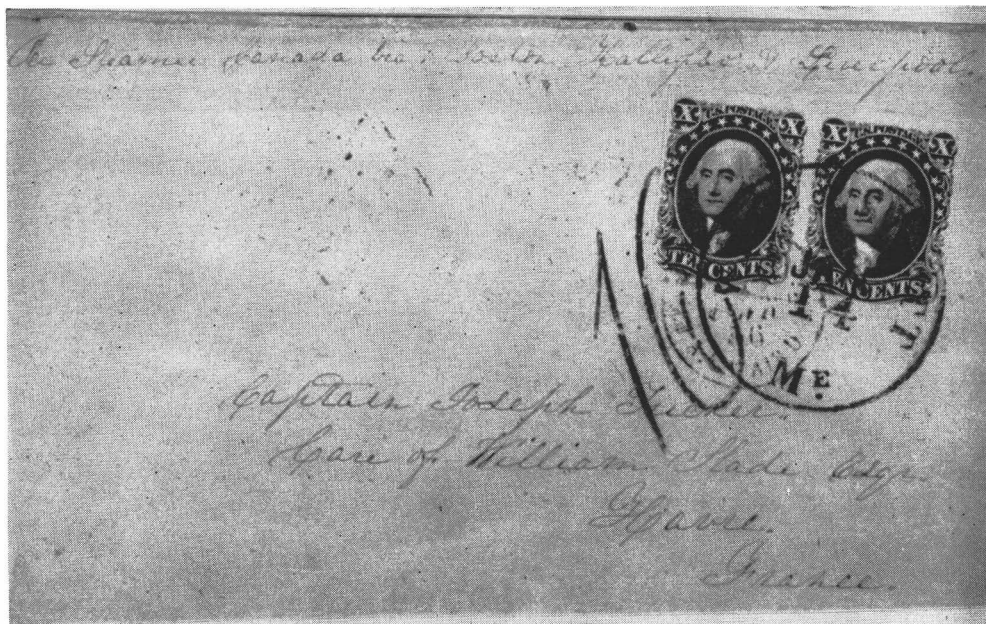 Steamer Canada via: Boston Hallifax & Liverpool.
X U.S. POSTAGE X
X U.S. POSTAGE X
TEN CENTS
TEN CENTS
T
ME
Captain Joseph Tucker.
Care of William Slade Esqr.
Havre.
France.